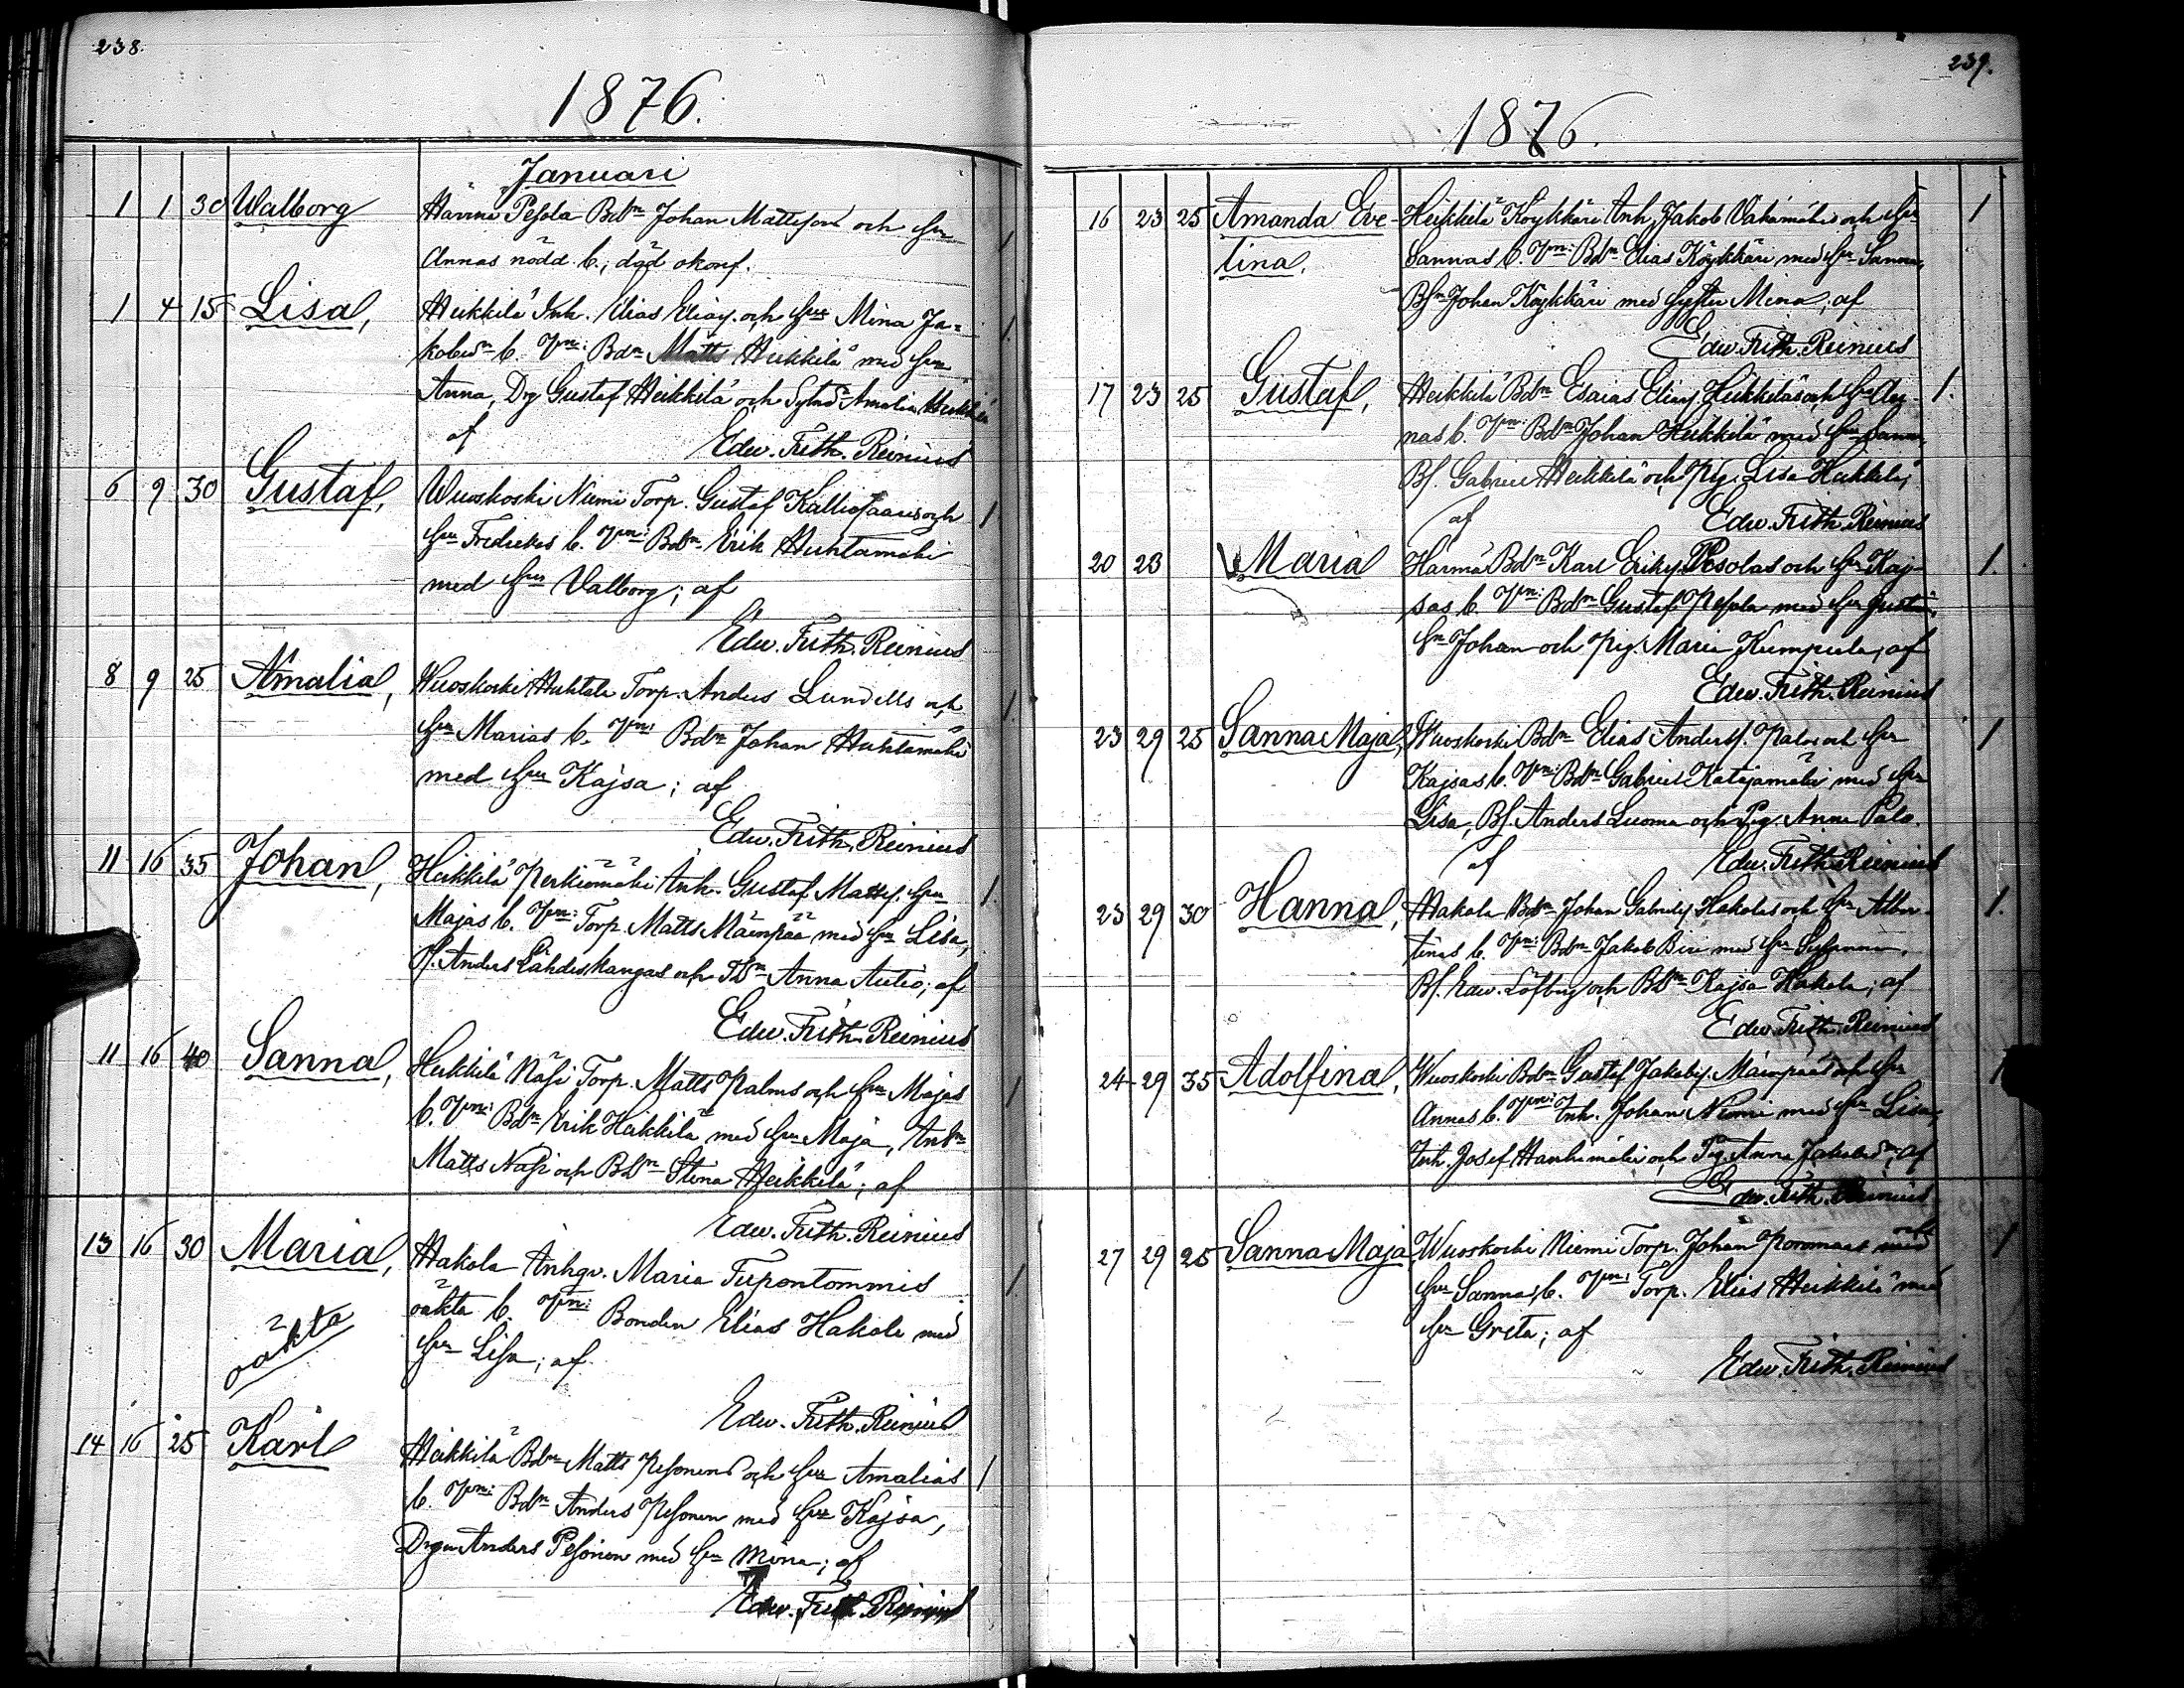 238.
1876.
Januari
1 1 30 Walborg Härmä Pesola Bdn Johan Mattsson och Hu
Annas nödd. b.; död okonf.
1 4 15 Lisa, Heikkilä Inh. Elias Eliass. och Hu Mina Ja-
kobsdr b. Vn: Bdn Matts Heikkilä med Hu
Anna, Drg Gustaf Heikkilä och Amalia Heikkilä
af Edw. Frith. Reinius
6 9 30 Gustaf, Wuoskoski Niemi Torp. Gustaf Kalliosaaris och
Hu Fredrikas b. Vn: Bdn Erik Huhtamäki
med Hu Valborg; af
Edw. Frith. Reinius
8 9 25 Amalia, Wuoskoski Huhtala Torp. Anders Lundells och
Hu Marias b. Vn: Bdn Johan Huhtamäki
med Hu Kajsa; af
Edw. Frith. Reinius
11 16 35 Johan, Heikkilä Perkiömäki Inh. Gustaf Matts. Hu
Majas b. Vn: Torp. Matts Mäenpää med Hu Lisa,
Anders Lähdeskangas och Anna Autio; af
Edw. Frith. Reinius
11 16 40 Sanna, Heikkilä Näsi Torp. Matts Palms och Hu Majas
b. Vn: Bdn Erik Heikkilä med Hu Maja, Inhn
Matts Näsi och Bdn Stina Heikkilä; af
Edw. Frith. Reinius
13 16 30 Maria, Hakola Inhqv. Maria
oäkta b. Vn: Bonden Elias Hakola med
oäkta Hu Lisa; af
Edw. Frith. Reinius
14 16 25 Karl Heikkilä Bdn Matts Pesonens och Hu Amalias
b. Vn: Bdn Anders Pesonen med Hu Kajsa,
Drgn Anders Pesonen med Hu Mina; af
Edw. Frith. Reinius
239.
1876.
16 23 25 Amanda Eve- Heikkilä Köykkäri Inh. Jakob Vähämäkis och Hu
lina. Sannas b. Vn: Bdn Elias Köykkäri med Hu Sanna,
Bsn Johan Köykkäri med syster Mina; af
Edw. Frith. Reinius
17 23 25 Gustaf, Heikkilä Bdn Esaias Eliass. Heikkiläs och Hu An-
nas b. Vn: Bdn Johan Heikkilä med Hu Sanna,
Bs. Gabriel Heikkilä och Pig. Lisa Heikkilä;
af Edw. Frith. Reinius
20 23 Maria Härmä Bdn Karl Eriks. Pesolas och Hu Kaj-
sas b. Vn: Bdn Gustaf Pesola med Hu Justina,
Johan och Pig. Maria Kumpula; af
Edw. Frith. Reinius
23 29 25 Sanna Maja, Wuoskoski Bdn Elias Anderss. Palos och Hu
Kajsas b. Vn: Bdn Gabriel Katajamäki med Hu
Lisa, Bs. Anders Luoma och Pig. Anna Palo.
af Edw. Frith. Reinius
23 29 30 Hanna, Hakola Bdn Johan Gabriels. Hakolas och Hu Alber-
tinas b. Vn: Bdn Jakob Biri med Hu Susanna,
Bs. Edw. Löfberg och Bdn Kajsa Hakola; af
Edw. Frith. Reinius
24 29 35 Adolfina, Wuoskoski Bdn Gustaf Jakobs. Mäenpääs och Hu
Annas b. Vn: Inh. Johan Niemi med Hu Lisa,
Inh. Josef Hanhimäki och Pig. Anna Jakobsdr; af
Edw. Frith. Reinius
27 29 25 Sanna Maja Wuoskoski Niemi Torp. Johan Poromaas och
Hu Sannas b. Vn: Torp. Elias Heikkilä med
Hu Greta; af
Edw. Frith. Reinius